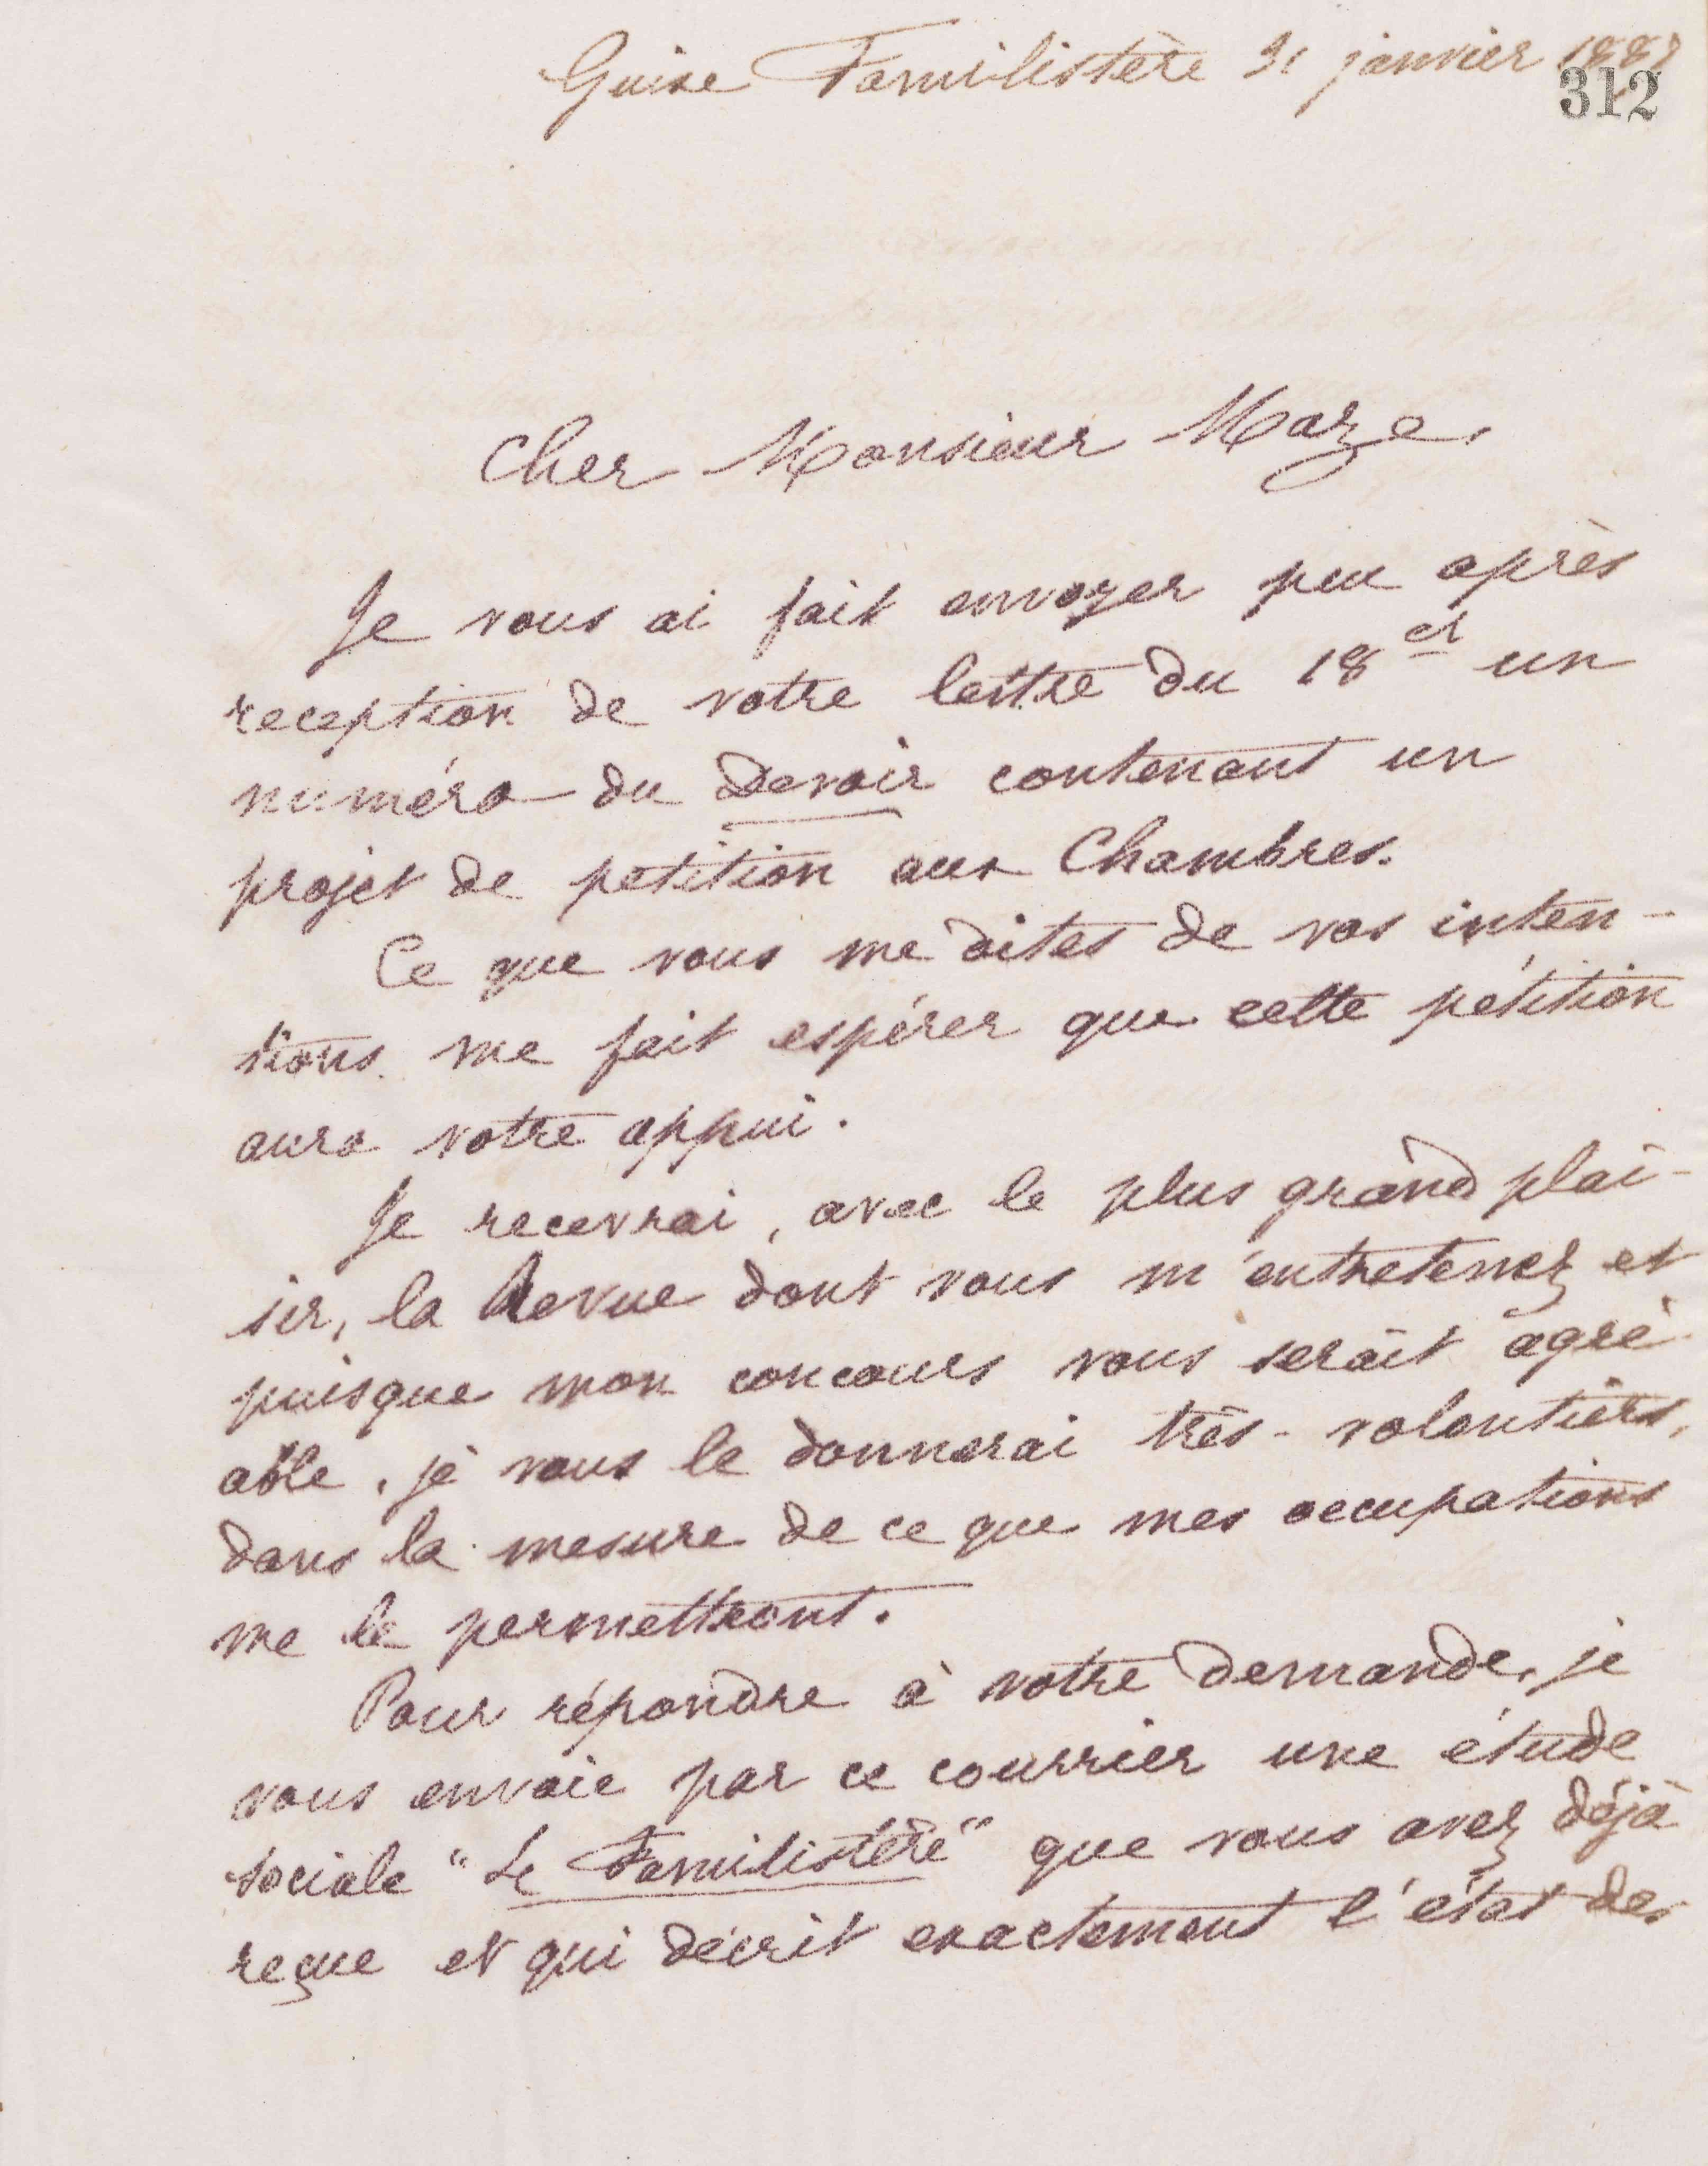 Guise Familistère 31 janvier
312
Cher Monsieur Maze,
Je vous ai fait envoyer peu après
reception de votre lettre du 18 ct un
numéro du Devoir contenant un
projet de petition aux Chambres.
Ce que vous me dites de vos inten-
tions me fait espérer que cette pétition
aura votre appui.
Je recevrai, avec le plus grand plai-
sir, la Revue dont vous m'entretenez et
puisque mon concours vous serait agré-
able, je vous le donnerai très-volontiers,
dans la mesure de ce que mes occupations
me le permettront.
Pour répondre à votre demande, je
vous envoie par ce courrier une étude
sociale "Le Familistère" que vous avez déjà
reçue et qui décrit exactement l'état des